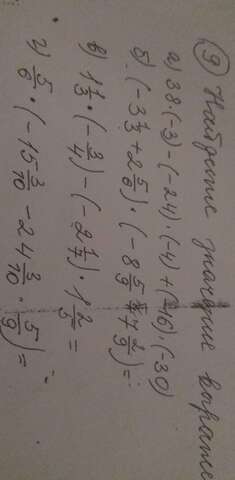 9 Найдите значение выраже
а) 38·(-3)-(-24)·(-4)+(-16)·(-30)
б) (-3 1/3 + 2 5/6)·(-8 5/9 + 7 2/9)=
в) 1 1/3·(-3/4)-(-2 1/7)·1 2/5=
г) 5/6·(-15 3/10 - 24 3/10 · 5/9)=